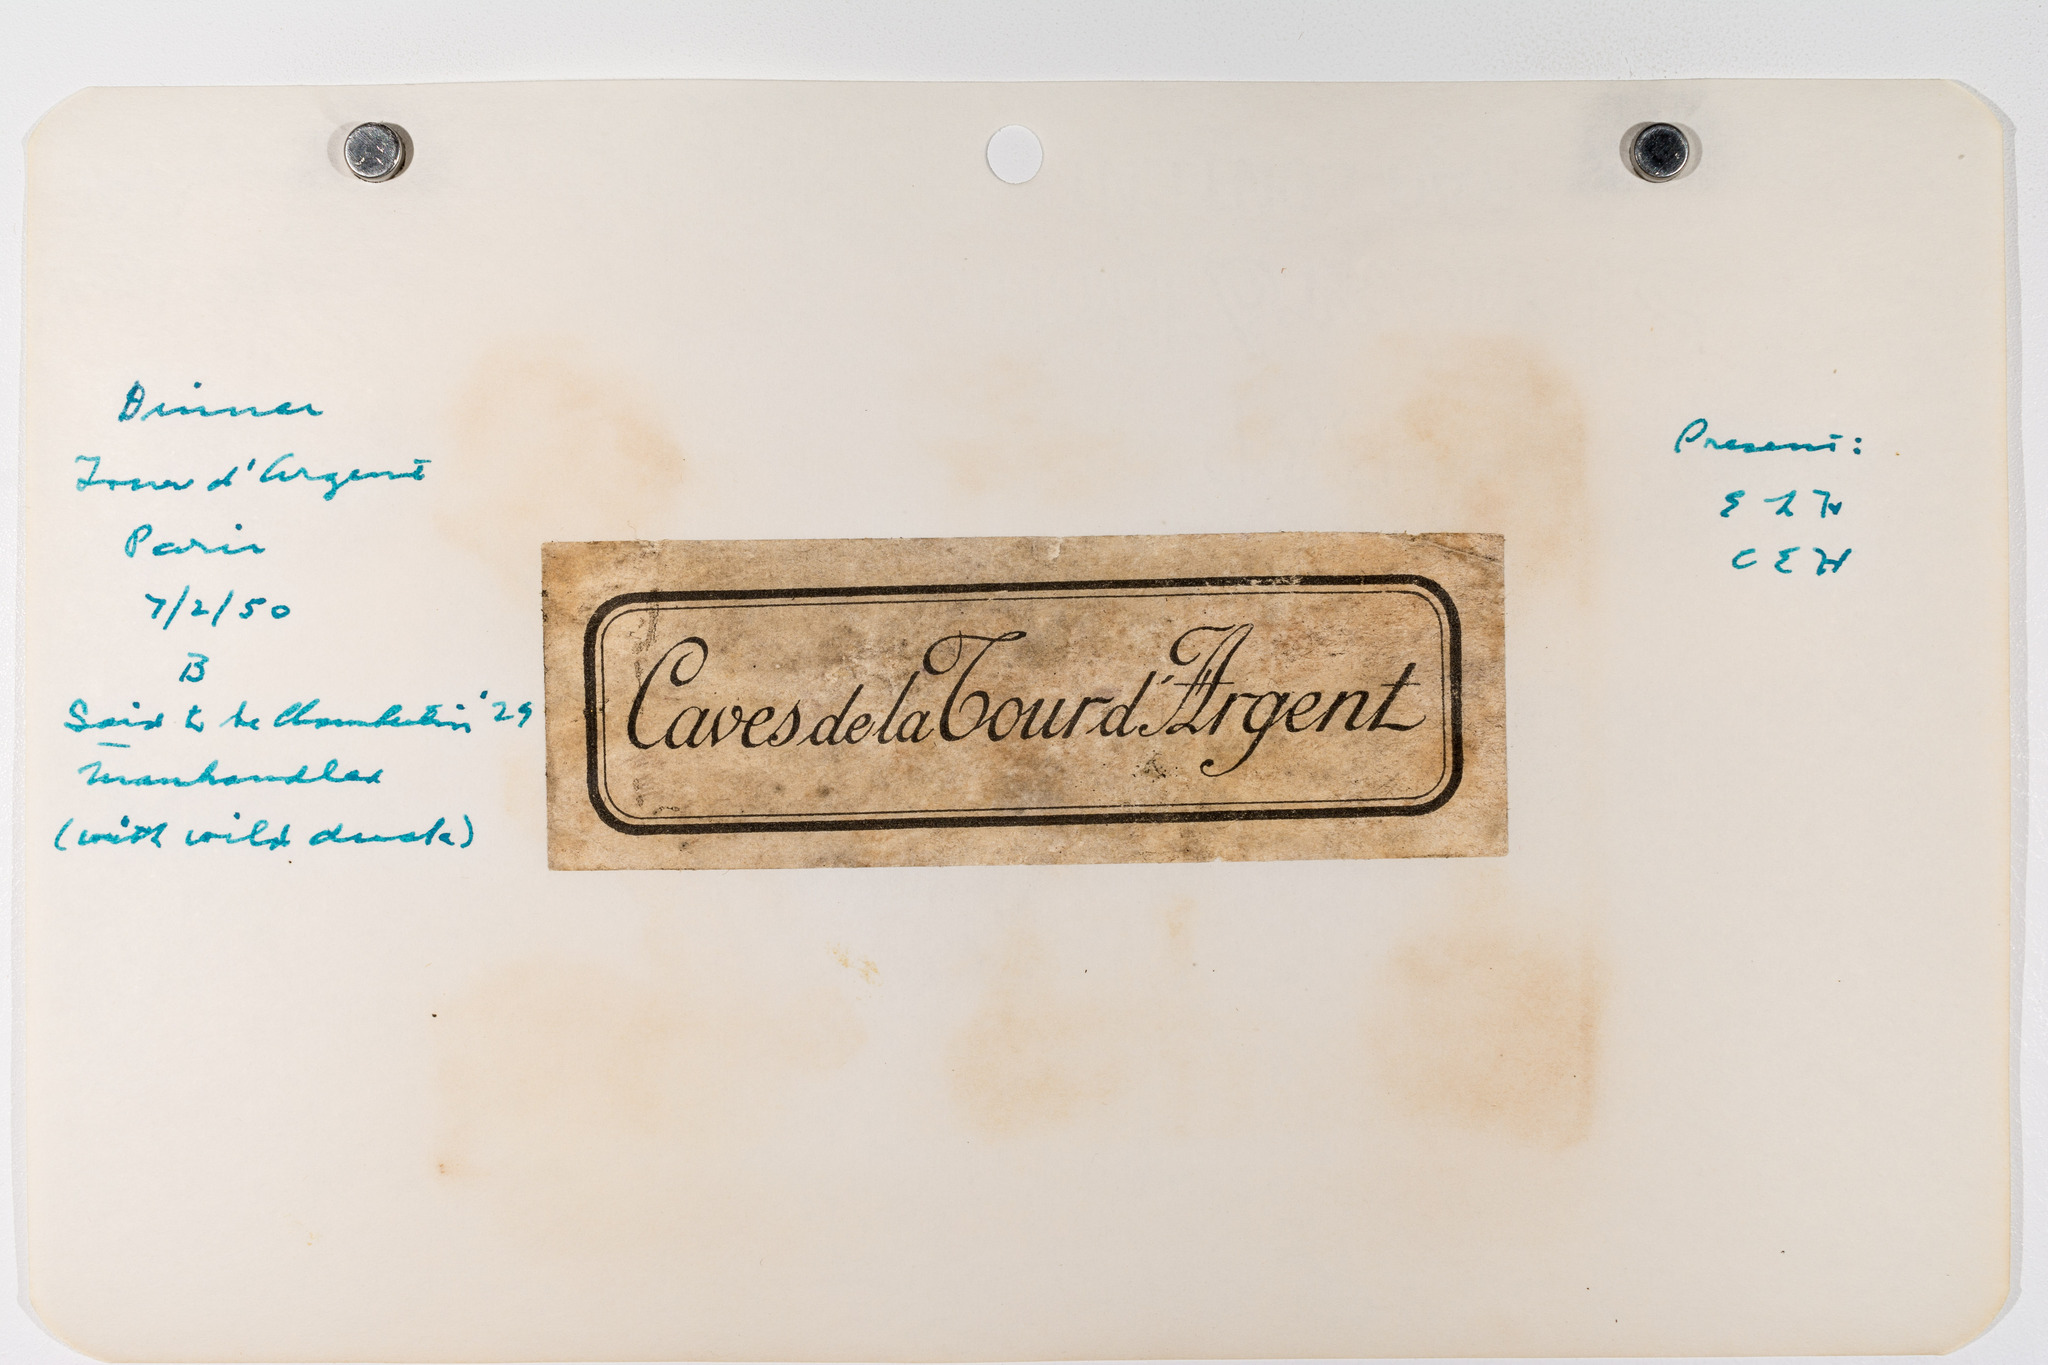 Dinner
Tour d'Argent
Paris
7/2/50
B
Said to be Chambertin '29
Manhandled
(with wild duck)
Caves de la Tour d'Argent
Present:
E L H
C E H